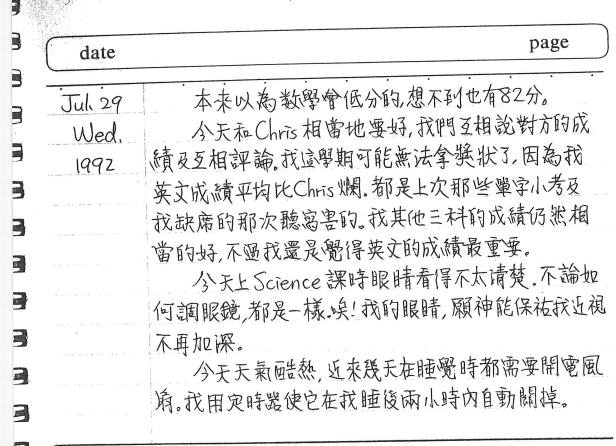 date page
Jul. 29 本來以為數學會低分的,想不到也有82分。
Wed. 今天和Chris相當地要好,我們互相說對方的成
1992 績及互相評論。我這學期可能無法拿獎狀了,因為我
英文成績平均比Chris爛.都是上次那些單字小考及
我缺席的那次聽寫害的。我其他三科的成績仍然相
當的好,不過我還是覺得英文的成績最重要。
今天上Science課時眼睛看得不太清楚.不論如
何調眼鏡,都是一樣.唉!我的眼睛,願神能保祐我近視
不再加深。
今天天氣酷熱,近來幾天在睡覺時都需要開電風
扇。我用定時器使它在我睡後兩小時內自動關掉。